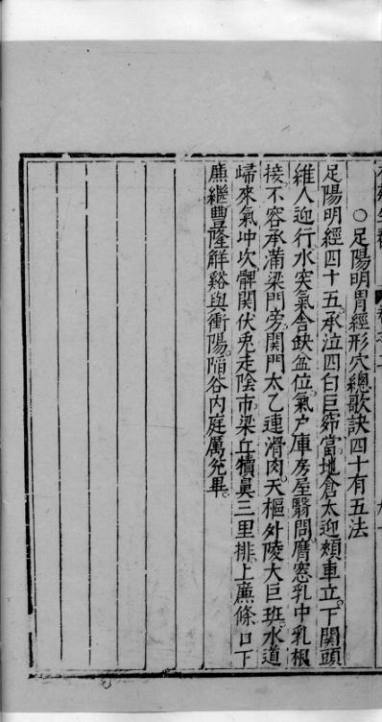 ○足陽明胃經形穴總歌訣四十有五法
足陽明經四十五承泣四白巨窌當地倉太迎頰車立下關頭
維人迎行水突氣舍缺盆位氣户庫房屋翳問膺窓乳中乳根
接不容承滿梁門旁關門太乙連滑肉天樞外陵大巨班水道
歸來氣冲次髀關伏兎走陰市梁丘犢鼻三里排上廉條口下
廉繼豊隆解谿與衝陽陷谷内庭厲兊畢